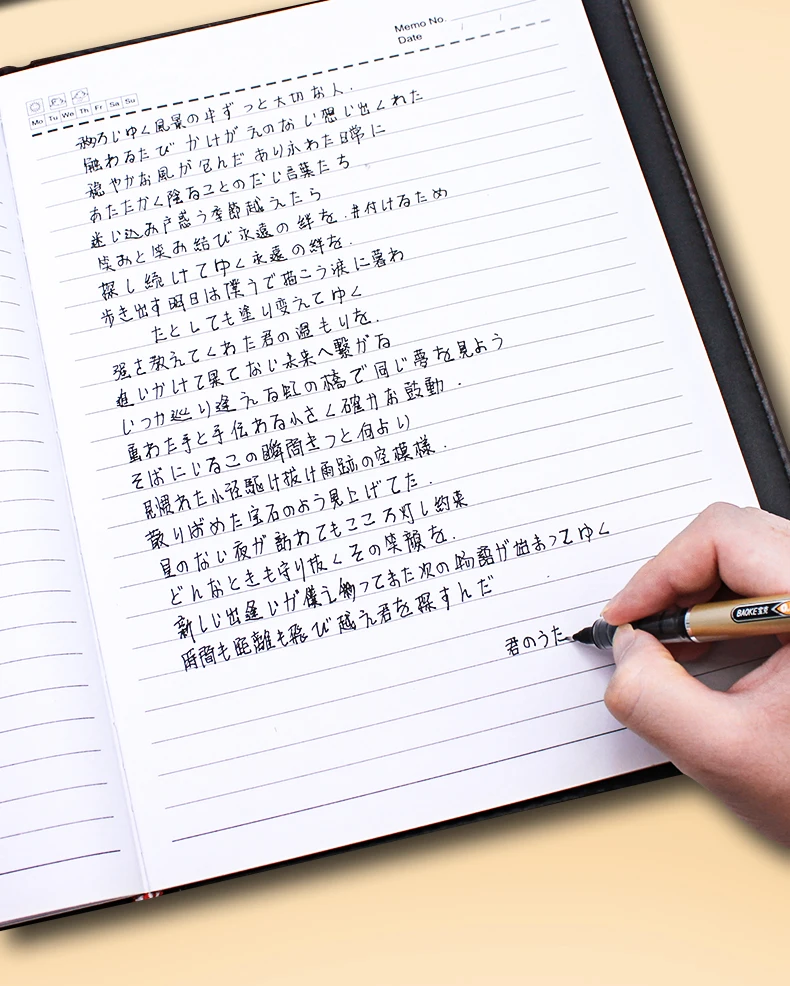 Memo No.
Date
Mo Tu We Th Fr Sa Su
移ろいゆく風景の中ずっと大切な人.
触れるたびかけがえのない想い出くれた
穏やかな風が包んだありふれた日常に
あたたかく陰ることのない言葉たち
迷い込み戸惑う季節越えたら
笑みと笑み結び永遠の絆を.#付けるため
探し続けてゆく永遠の絆を.
歩き出す明日は僕うで描こう涙に暮れ
たとしても塗り変えてゆく
强さ教えてくれた君の温もりを.
追いかけて果てない未来へ繋がる
いつか巡り逢える虹の橋で同じ夢を見よう
重ねた手と手伝わる小さく確かな鼓動.
そばにいるこの瞬間きっと何より
見慣れた小径駆け抜け雨跡の空模様.
散りばめた宝石のよう見上げてた.
星のない夜が訪れてもこころ灯し約束
どんなときも守り抜くその笑顔を.
新しい出逢いが僕ら紡ってまた次の物語が始まってゆく
時間も距離も飛び越え君を探すんだ
君のうた
BAOKE宝克